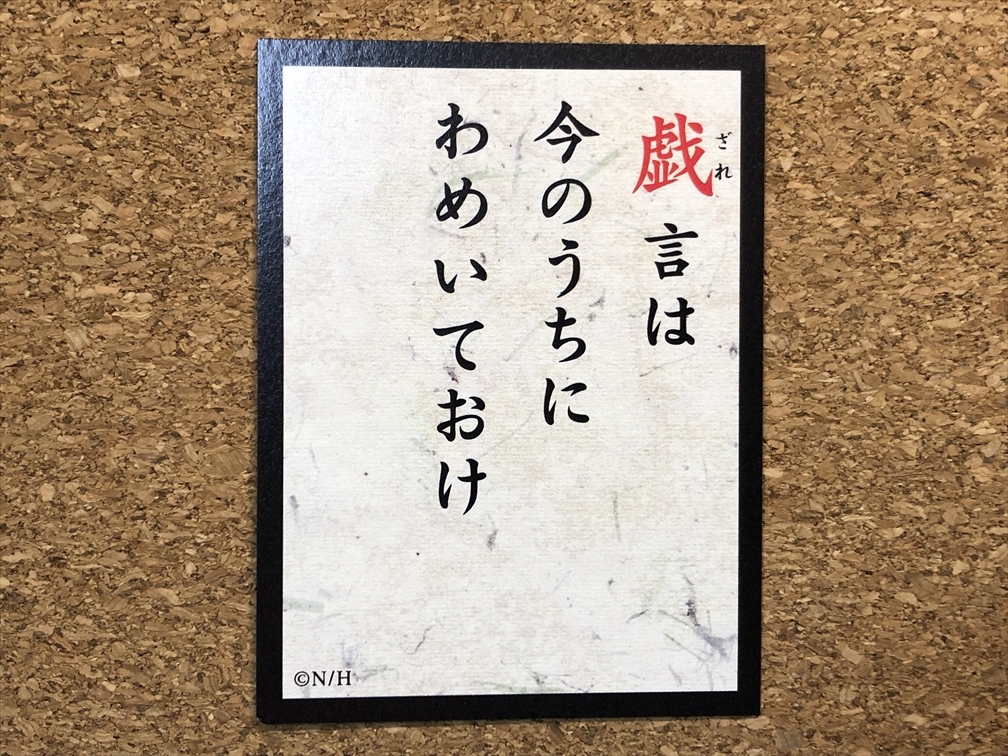 戯言は
ざれ
今のうちに
わめいておけ
©N/H